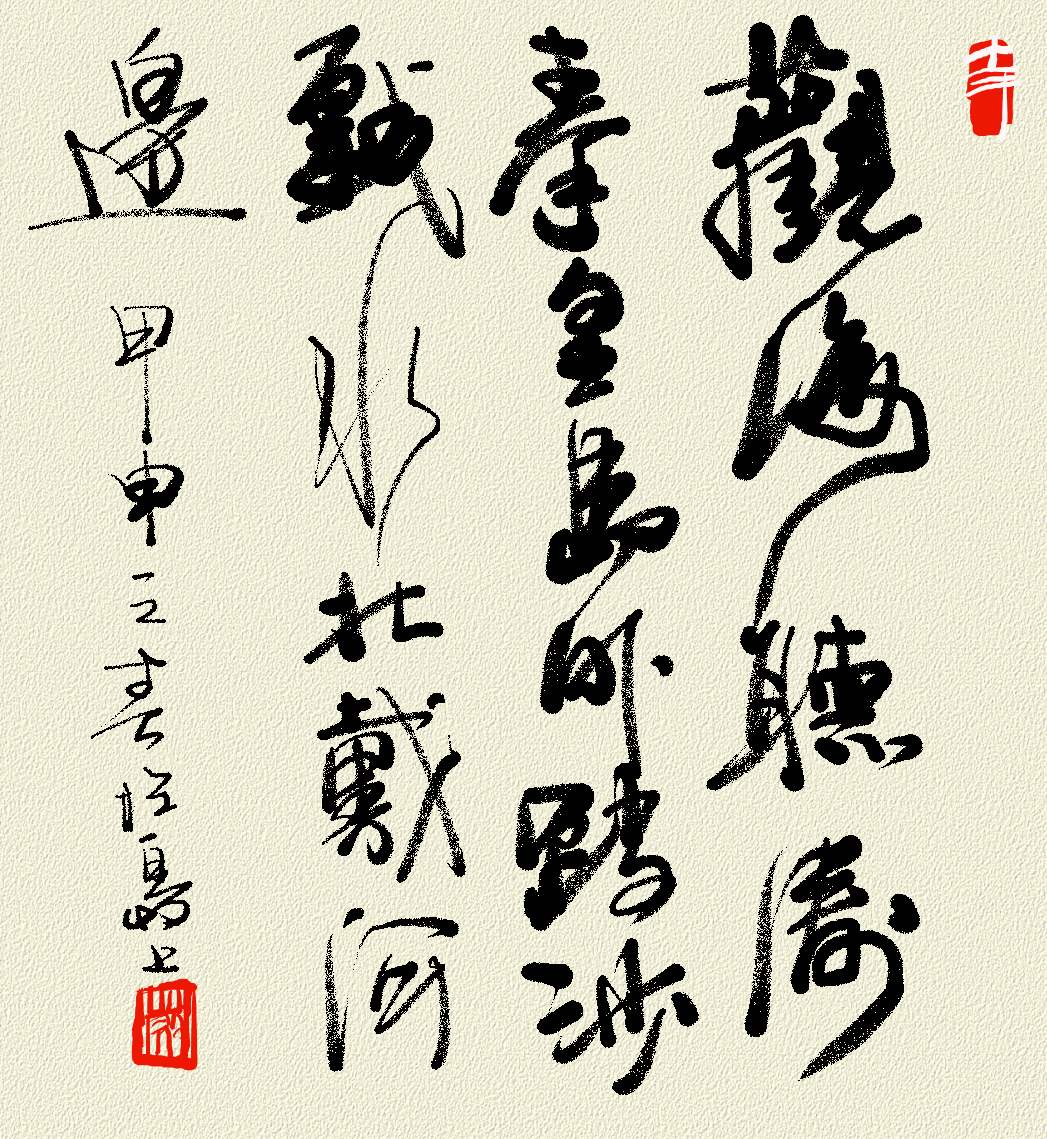 觀海聽濤
秦皇島外踏沙
戲水北戴河
邊
甲申之春 島上